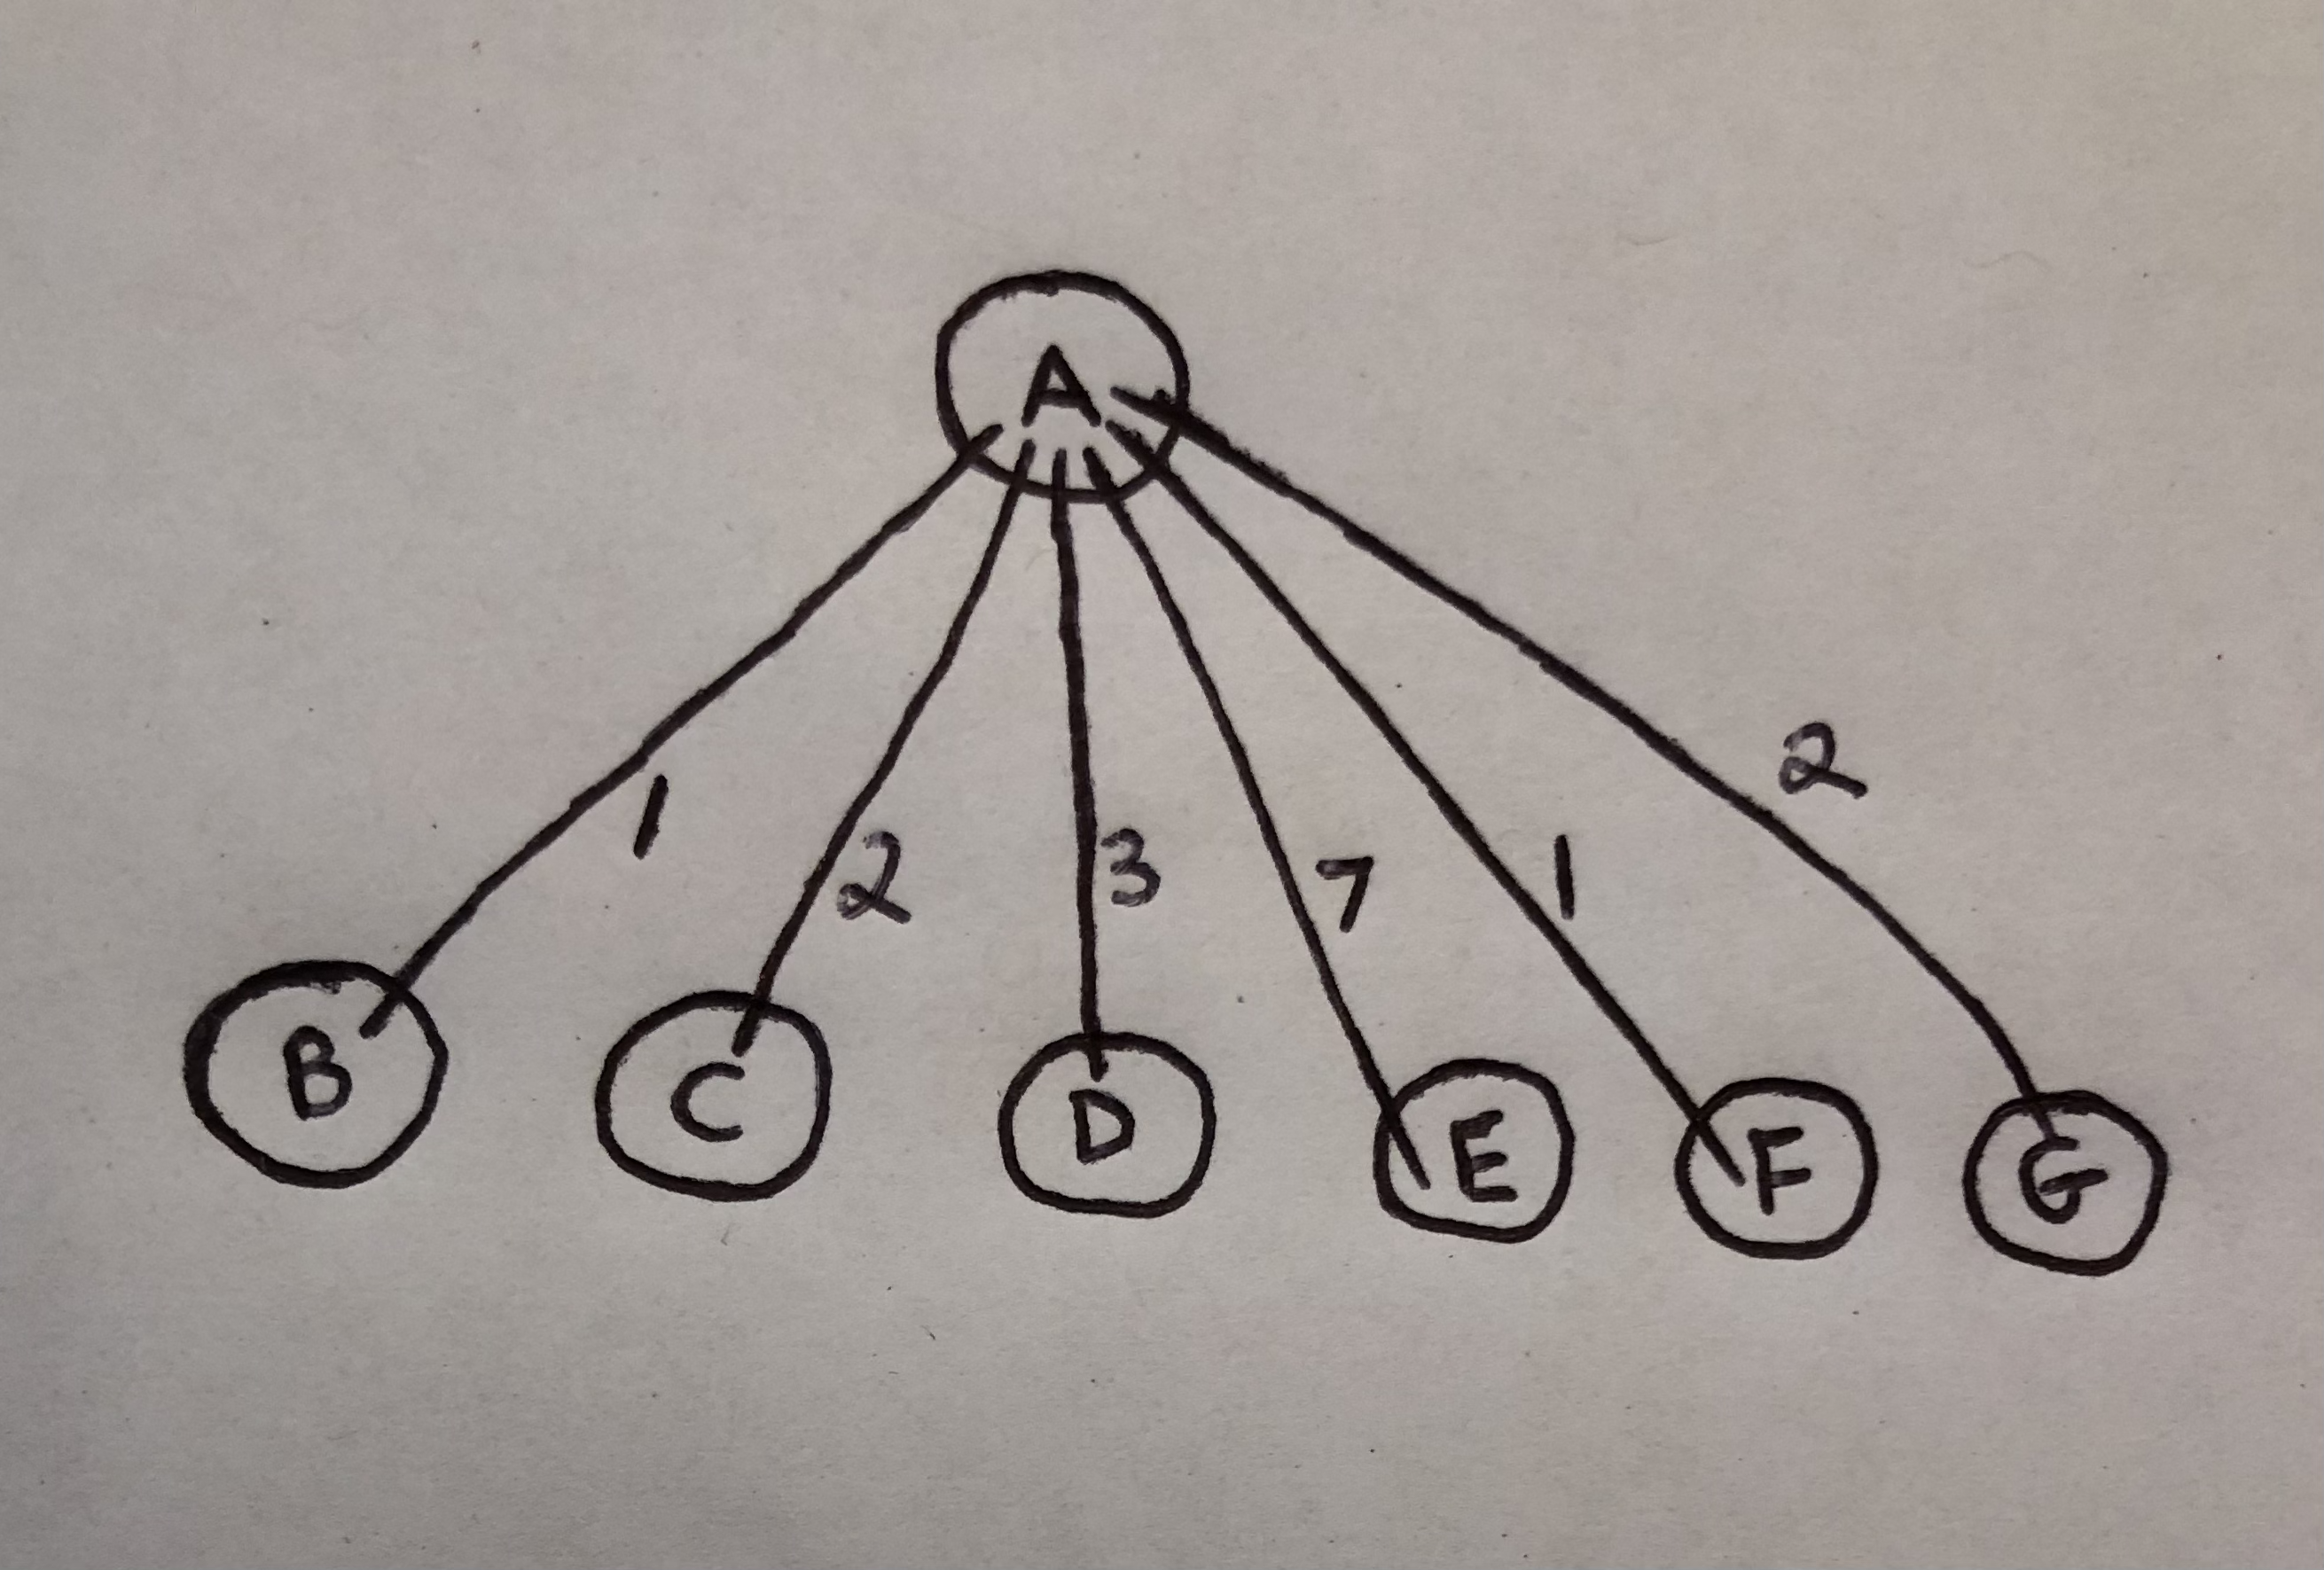 A
1 2 3 7 1 2
B C D E F G